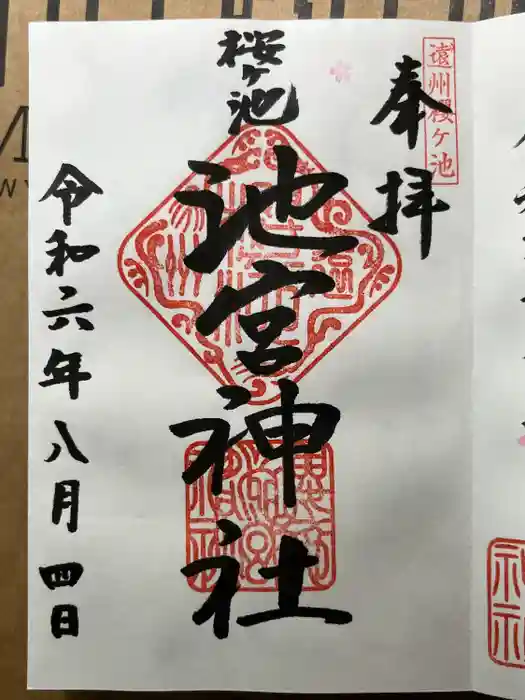 遠州櫻ケ池
奉拝
桜ヶ池
池宮神社
令和六年八月四日